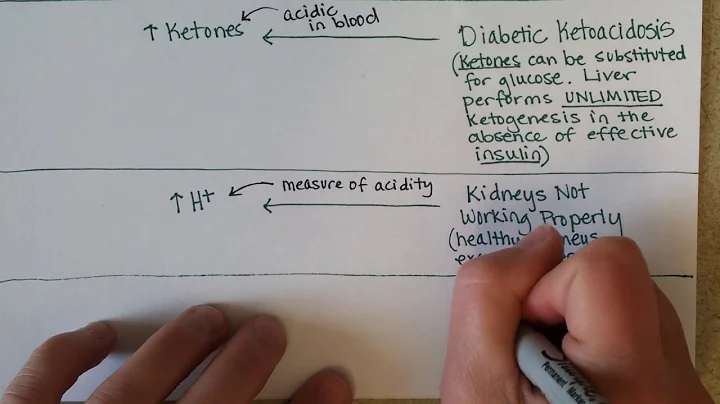 ↑ Ketones
acidic
in blood
Diabetic Ketoacidosis
(Ketones can be substituted
for glucose. Liver
performs UNLIMITED
Ketogenesis in the
absence of effective
insulin)
↑ H+
measure of acidity
Kidneys Not
Working Properly
(healthy
Permanent Marker